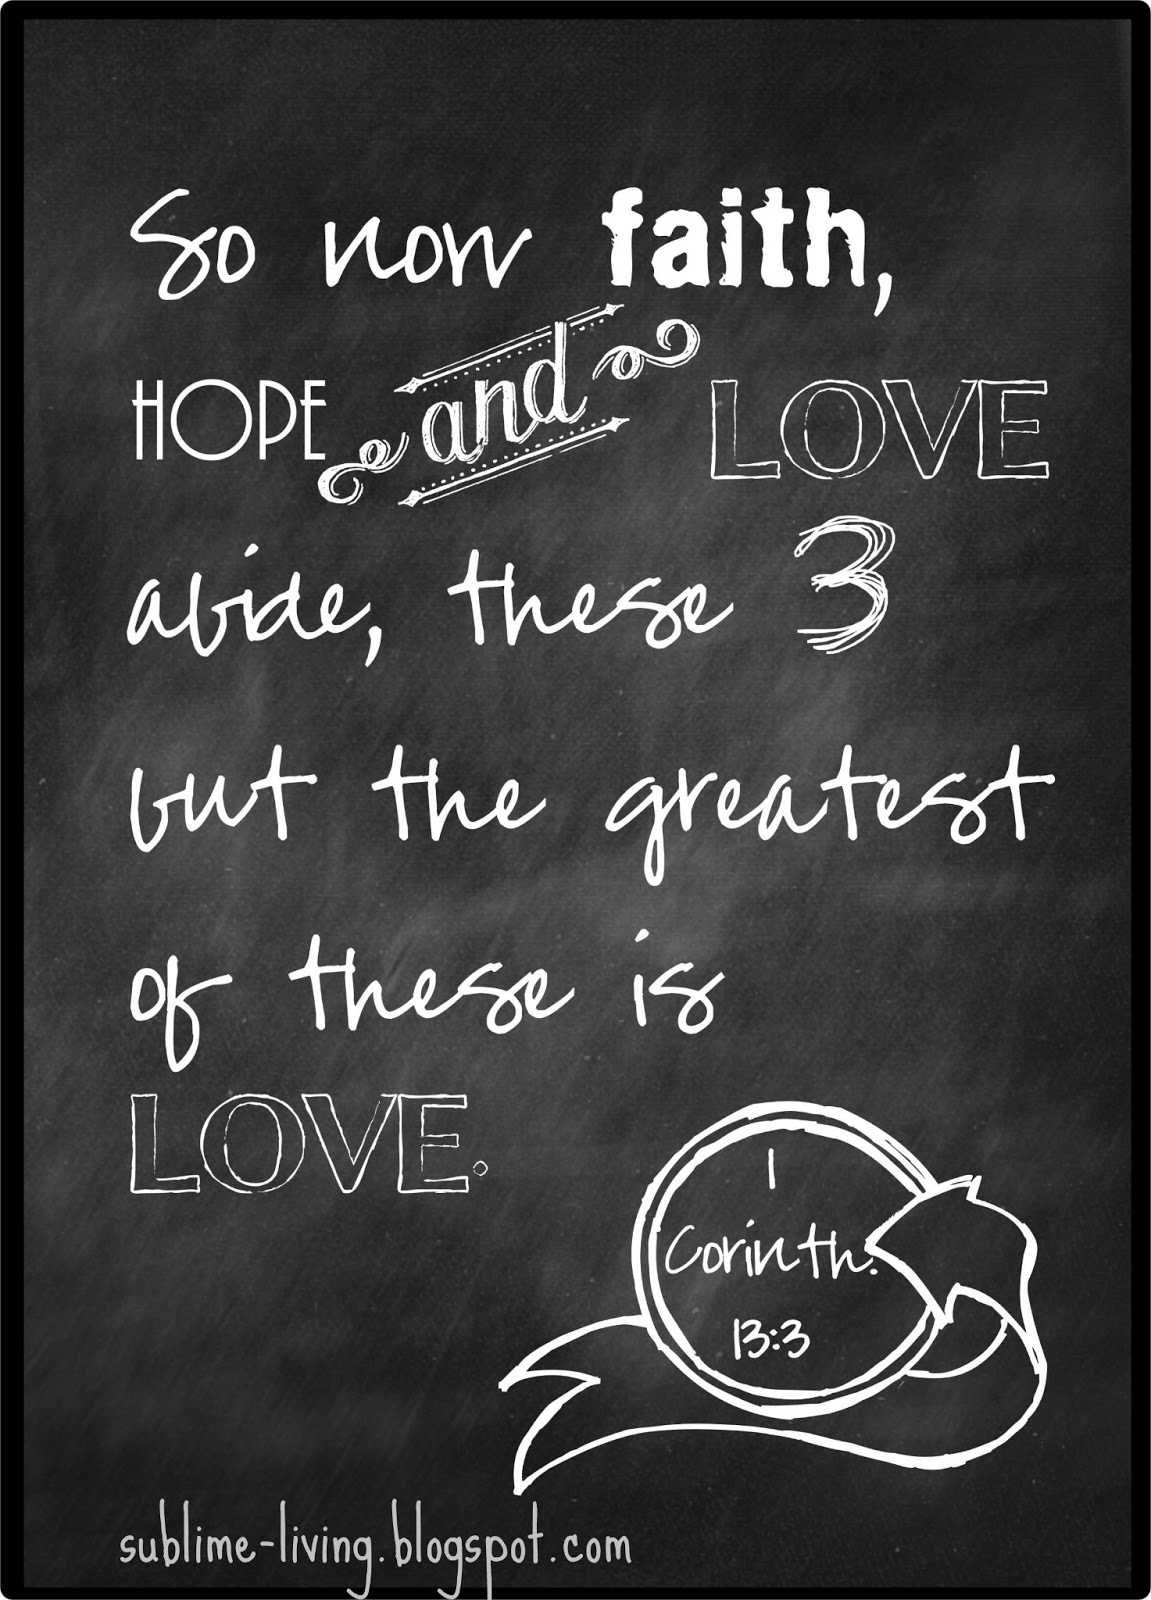 So now faith,
HOPE and LOVE
abide, these 3
but the greatest
of these is
LOVE.
1
Corinth.
13:3
sublime-living.blogspot.com